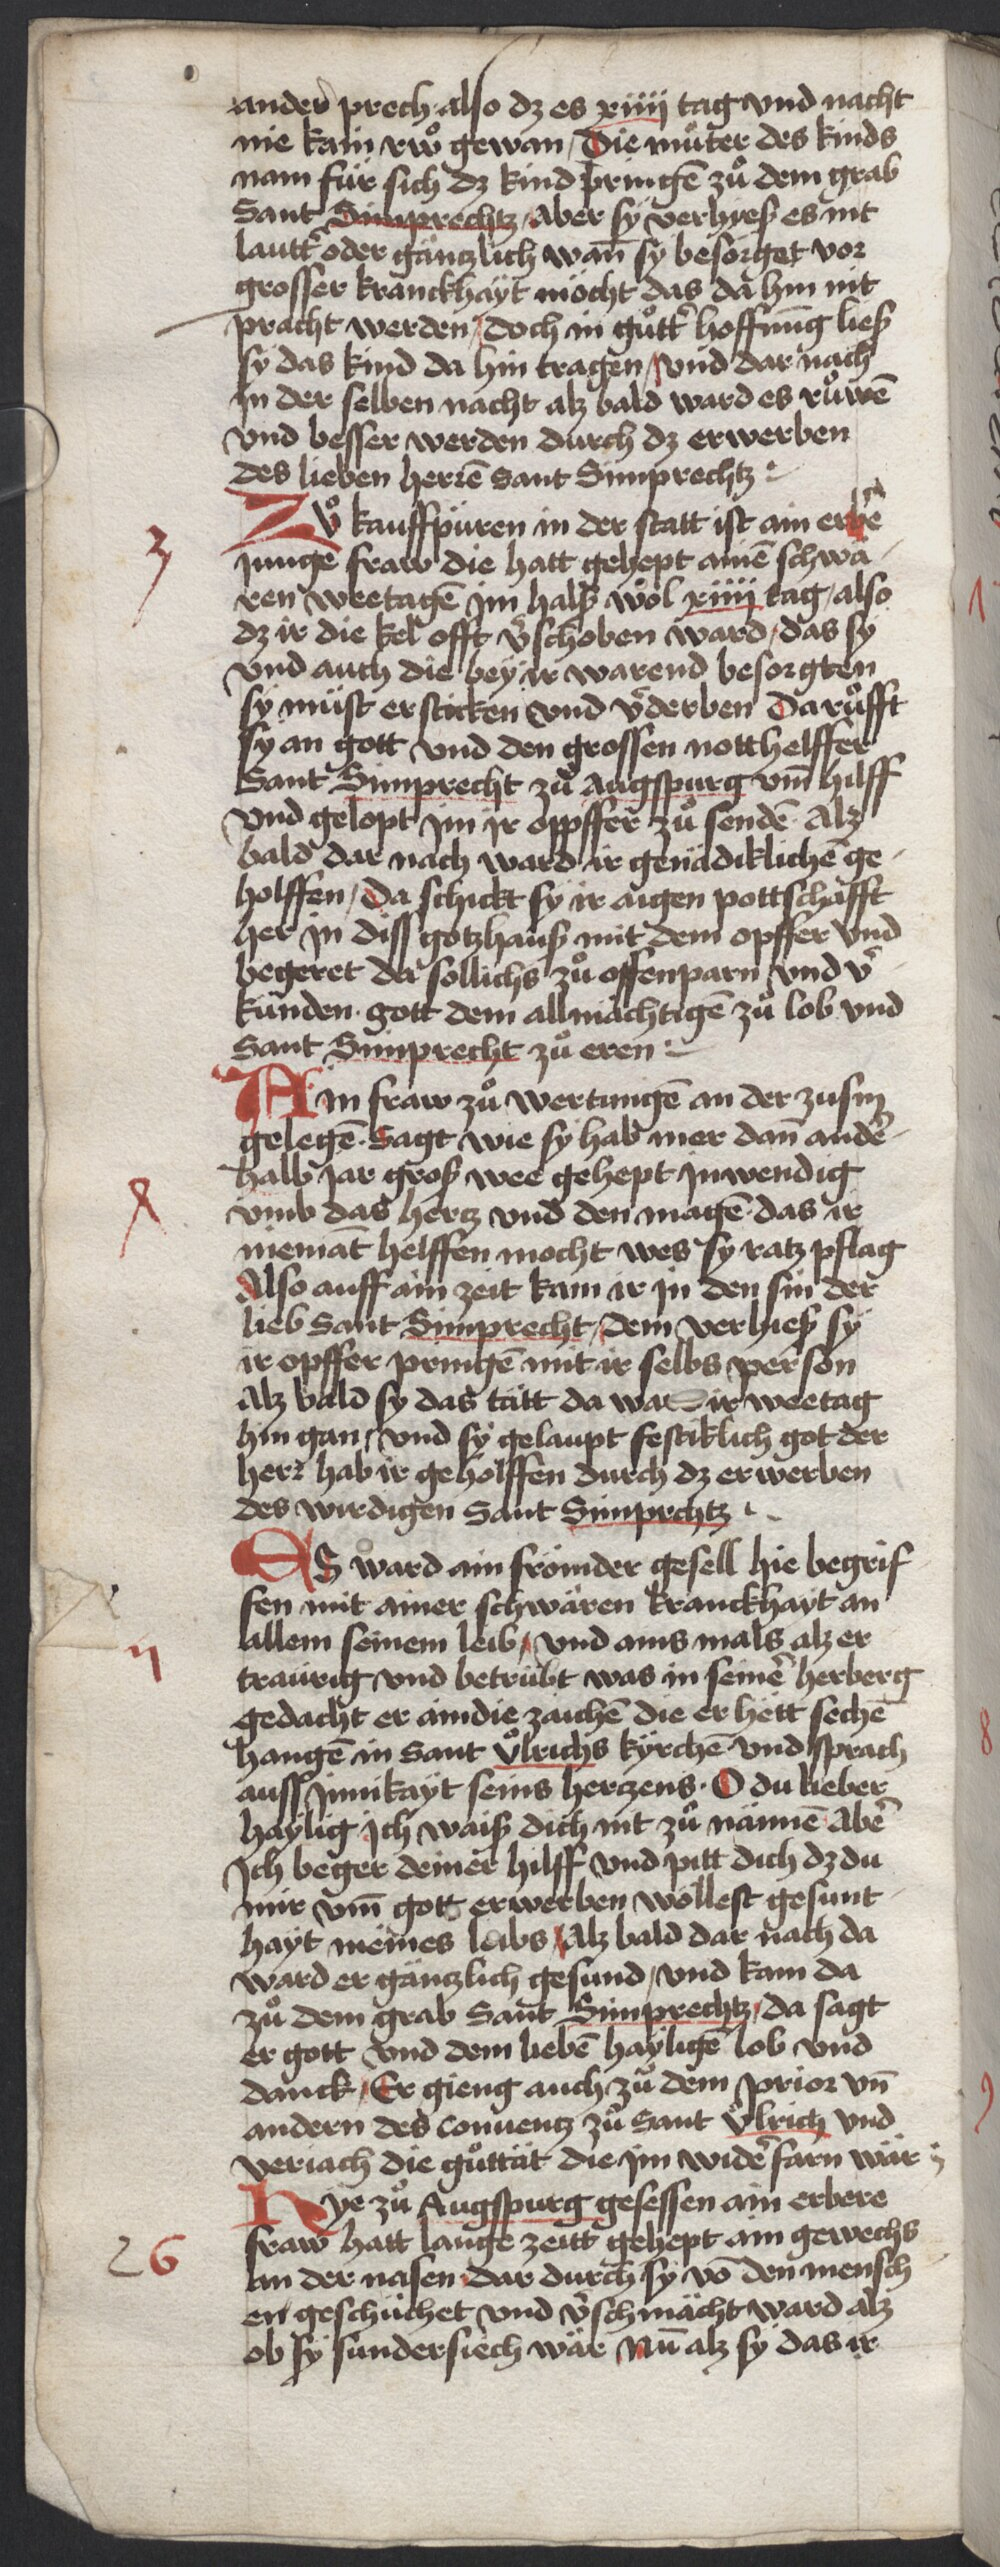 ander prech also dz es xiiij tag vnd nacht
nie kain rwͦ gewan / Die muͦter des kinds
nam für sich dz kind pringē zuͦ dem grab
Sant Simprechtz / Aber sÿ verhies es nit
lautt̾ oder gäntzlich wañ sÿ besorget vor
grosser kranckhaÿt möcht das da hin nit
pracht werden / doch in guͦtt̾ hoffnūg lies
sÿ das kind da hin tragen / vnd dar nach
jn der selben nacht alz bald ward es ruͦwē
vnd besser werden durch dz erwerben
des lieben herrē Sant Simprechtz
3
Zuͦ kauffpüren in der statt ist ain erbe̾
junge fraw die hatt gehept ainē schwä
ren weetagē jm halß wol xiiij tag / also
dz ir die kel offt v̾schoben ward / das sÿ
vnd auch die beÿ ir warend besorgten
sÿ müst ersticken vnd v̾derben Da ruͦfft
sÿ an gott vnd den grossen notthelffer
Sant Simprecht zuͦ Augspurg vm̄ hilff
vnd gelopt jm ir opffer zuͦ sendē Alz
bald dar nach ward ir genädiklichē ge
holffen / Da schickt sÿ ir aigen pottschafft
her jn diss gotzhauß mit dem opffer vnd
begeret der sollichs zuͦ offenparn / vnd v̾
künden gott dem allmächtigē zuͦ lob vnd
Sant Simprecht zuͦ eren
Ain fraw zuͦ wertungē an der zusm
gelegē Sagt wie sÿ hab mer dañ andē
halb jar groß wee gehept jnwendig
vmb das hertz vnd den magē das ir
niemāt helffen mocht wes sÿ ratz pflag
Also auff ain zeit kam ir jn den sin der
lieb Sant Simprecht / dem verhieß sÿ
ir opffer pringē mit ir selbs person
Alz bald sÿ das tätt da was ir weetag
hin gan / vnd sÿ gelaupt festiklich got der
herr hab ir geholffen durch dz erwerben
des wirdigen Sant Simprchtz
ES ward ain frömder gesell hie begrif
fen mit ainer schwären kranckhaÿt an
allem seinem leib / vnd ains mals alz er
traurig vnd betrübt was in seinē herberg
gedacht er an die zaichē die er hett sechē
hangē in Sant Vͦlrichs kÿrchē vnd sprach
auss jnnikaÿt seins hertzens · O du lieber
haÿlig jch waiß dich nit zuͦ nännē Abē
Jch beger deiner hilff vnd pitt dich dz du
mir vm̄ gott erwerben wöllest gesunt
haÿt meines leibs / Alz bald dar nach da
ward er gäntzlich gesund / vnd kam da
zuͦ dem grab Sant Simprechtz / da sagt
er gott vnd dem liebē haÿligē lob vnd
danck / Er gieng auch zuͦ dem prior vn̄
andern des conuentz zuͦ Sant Vͦlrich vnd
veriach die guͦttät die jm wide̾farn wär
26
Hye zuͦ Augspurg gesessen ain erbere
fraw hatt lange zeitt gehept ain gewechs
an der nasen dar durch sÿ vō den mensch
en geschüchet vnd v̾schmächt ward alz
ob sÿ sundersiech wär Nū alz sÿ das ir